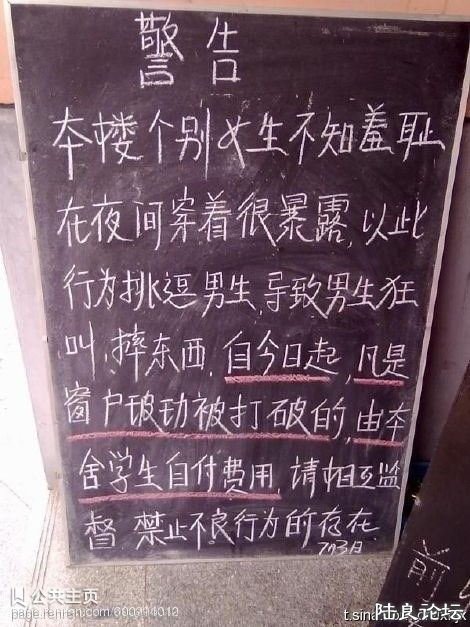 警告
本楼个别女生不知羞耻
在夜间穿着很暴露,以此
行为挑逗男生,导致男生狂
叫,摔东西,自今日起,凡是
窗户玻功被打破的,由本
舍学生自付费用,请相互监
督,禁止不良行为的存在.
前
公共主页
page.renren.com/600914012
t.sina
陆良论坛